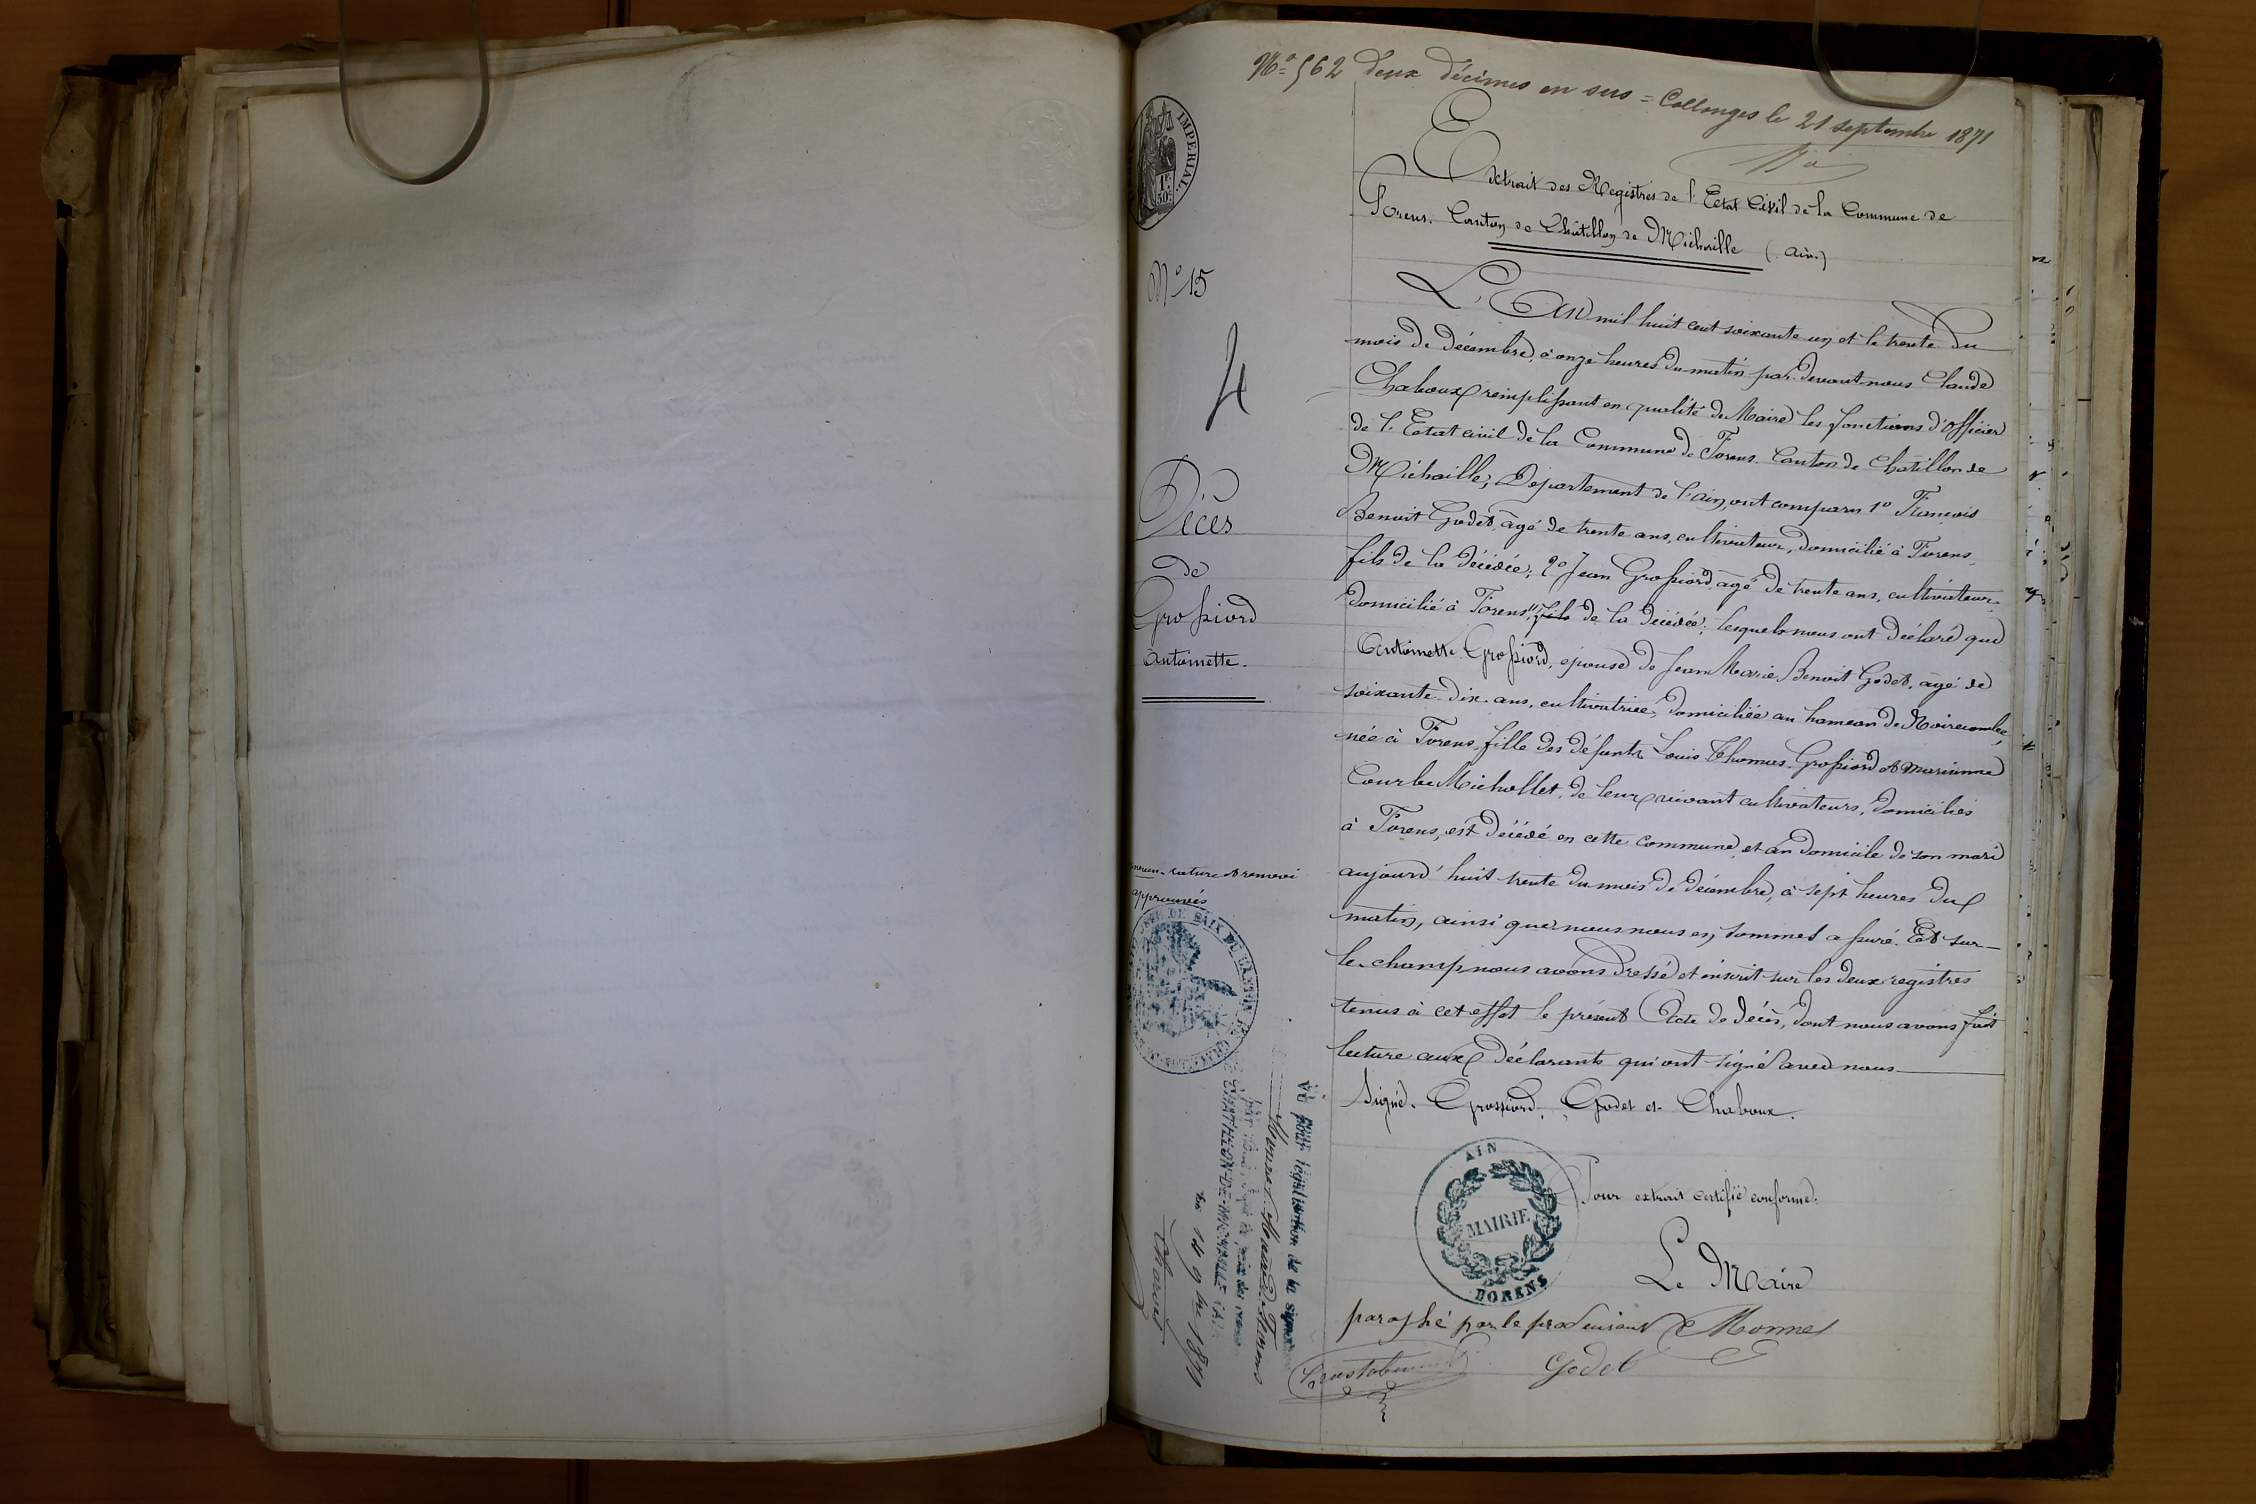 Nº 562 deux décimes en sus = Collonges le 21 septembre 1871
IMPERIAL.
1F.
50c
Extrait des Registres de l'Etat Civil de la Commune de
Forens. Canton de Châtillon de Michaille (Ain.)
Nº 15
4
Décès
de
Grossiord
Antoinette.
L'An mil huit cent soixante un et le trente du
mois de Décembre, à onze heures du matin par devant nous Claude
Chaboux remplissant en qualité de Maire les fonctions d'Officier
de l'Etat civil de la Commune de Forens. Canton de Châtillon de
Michaille, Département de l'ain, ont comparu 1º François
Benoit Godet, âgé de trente ans, cultivateur, domicilié à Forens,
fils de la décédée; 2º Jean Grossiord, âgé de trente ans, cultivateur
domicilié à Forens, fils de la décédée; lesquels nous ont déclaré que
Antoinette Grossiord, épouse de Jean Marie Benoit Godet, âgé de
soixante-dix ans, cultivatrice, domiciliée au hameau de Noirecombe,
née à Forens, fille des défunts Louis Thomas Grossiord et Marianne
Courbe Michollet, de leur vivant cultivateurs, domiciliés
à Forens, est décédé en cette commune et au domicile de son mari
aujourd'huit trente du mois de décembre, à sept heures du
matin, ainsi que nous nous en sommes assuré. Et sur-
le-champ nous avons dressé et inscrit sur les deux registres
tenus à cet effet le présent Acte de décès, dont nous avons fait
lecture aux déclarants qui ont signé avec nous
Signé. Grossiord, Godet et Chaboux.
rature et renvoi
approuvés
DE PAIX DU CANTON DE
Vu pour légalisation de la signature
Monnet Maire de Forens
CHATILLON-DE-MICHAILLE (AIN
le 14 9bre 1871
AIN
MAIRIE
FORENS
Pour extrait certifié conforme.
Le Maire
paraphé par le Monnet
Godet